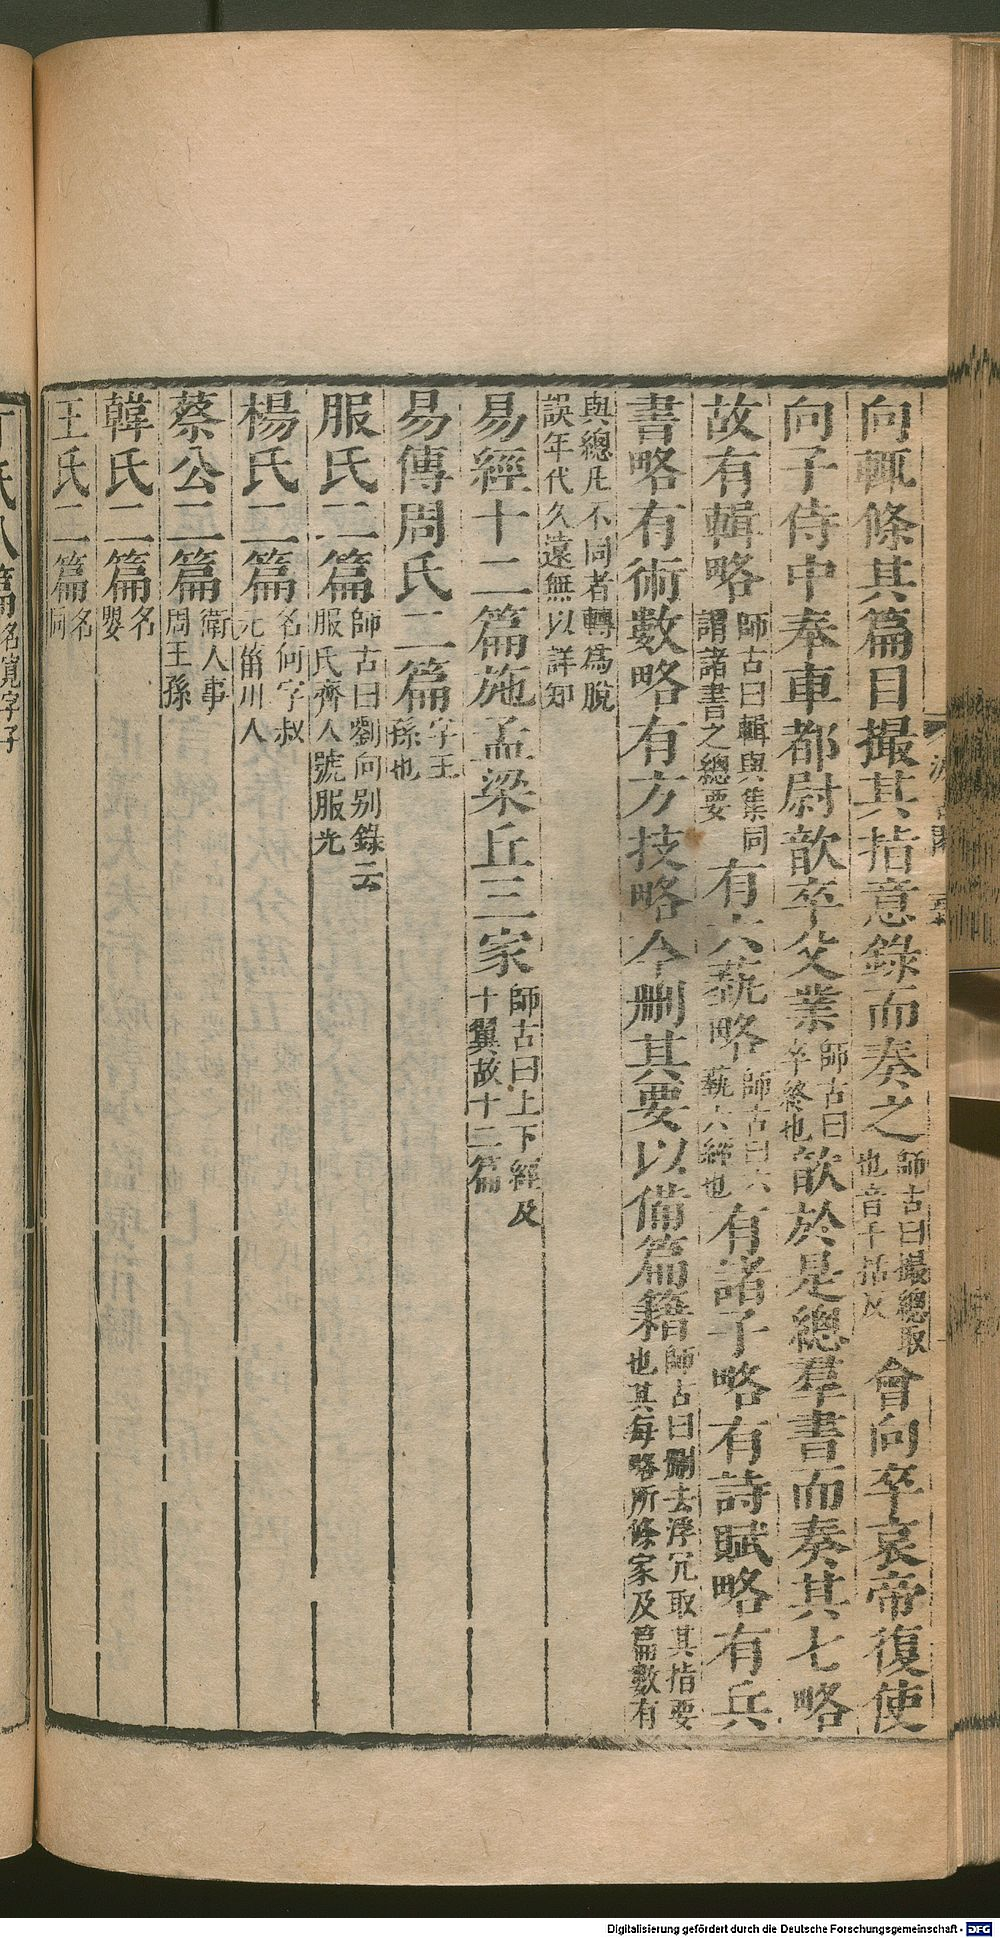 向輒條其篇目撮其指意錄而奏之師古曰撮總取也音千括反會向卒哀帝復使
向子侍中奉車都尉歆卒父業師古曰卒終也歆於是總羣書而奏其七略
故有輯略師古曰輯與集同謂諸書之總要有六蓺略師古曰六蓺六經也有諸子略有詩賦略有兵
書略有術數略有方技略今刪其要以備篇籍師古曰刪去浮冗取其指要也其每略所條家及篇數有
與總凡不同者轉寫脫誤年代久遠無以詳知
易經十二篇施孟梁丘三家師古曰上下經及十翼故十二篇
易傳周氏二篇字王孫也
服氏二篇師古曰劉向别錄云服氏齊人號服光
楊氏二篇名何字叔元菑川人
蔡公二篇衛人事周王孫
韓氏二篇名嬰
王氏二篇名同
丁氏八篇名寬字子
Digitalisierung gefördert durch die Deutsche Forschungsgemeinschaft - DFG